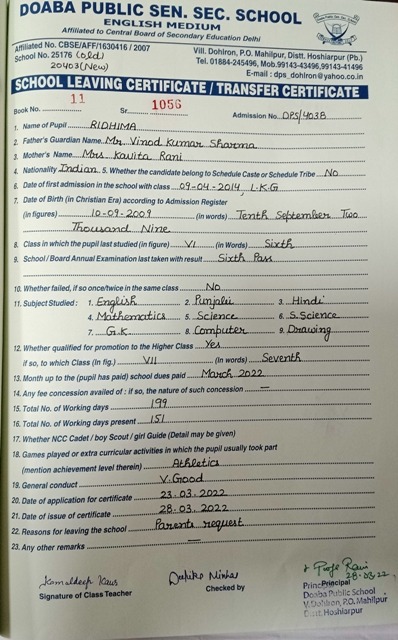 DOABA PUBLIC SEN. SEC. SCHOOL
ENGLISH MEDIUM
Affiliated to Central Board of Secondary Education Delhi
Affiliated No. CBSE/AFF/1630416 / 2007
School No. 25176 (old)
20403 (New)
Vill. Dohlron, P.O. Mahilpur, Distt. Hoshiarpur (Pb.)
Tel. 01884-245496, Mob.99143-43496,99143-41496
E-mail : dps_dohlron@yahoo.co.in
SCHOOL LEAVING CERTIFICATE / TRANSFER CERTIFICATE
Book No. 11 Sr. 1056 Admission No. DPS/4038
1. Name of Pupil RIDHIMA
2. Father's Guardian Name Mr. Vinod Kumar Sharma
3. Mother's Name Mrs. Kavita Rani
4. Nationality Indian 5. Whether the candidate belong to Schedule Caste or Schedule Tribe No
6. Date of first admission in the school with class 09-04-2014, L.K.G
7. Date of Birth (in Christian Era) according to Admission Register
(in figures) 10-09-2009 (in words) Tenth September Two
Thousand Nine
8. Class in which the pupil last studied (in figure) VI (in Words) Sixth
9. School / Board Annual Examination last taken with result Sixth Pass
10. Whether failed, if so once/twice in the same class No
11. Subject Studied : 1. English 2. Punjabi 3. Hindi
4. Mathematics 5. Science 6. S.Science
7. G.K 8. Computer 9. Drawing
12. Whether qualified for promotion to the Higher Class Yes
if so, to which Class (In fig.) VII (in Words) Seventh
13. Month up to the (pupil has paid) school dues paid March 2022
14. Any fee concession availed of : if so, the nature of such concession —
15. Total No. of Working days 199
16. Total No. of Working days present 151
17. Whether NCC Cadet / boy Scout / girl Guide (Detail may be given)
18. Games played or extra curricular activities in which the pupil usually took part
(mention achievement level therein) Athletics
19. General conduct V.Good
20. Date of application for certificate 23.03.2022
21. Date of issue of certificate 28.03.2022
22. Reasons for leaving the school Parents request
23. Any other remarks —
Kamaldeep Kaur
Signature of Class Teacher
Checked by
28.03.22
Principal
Doaba Public School
V.Dohlron, P.O. Mahilpur
Distt. Hoshiarpur